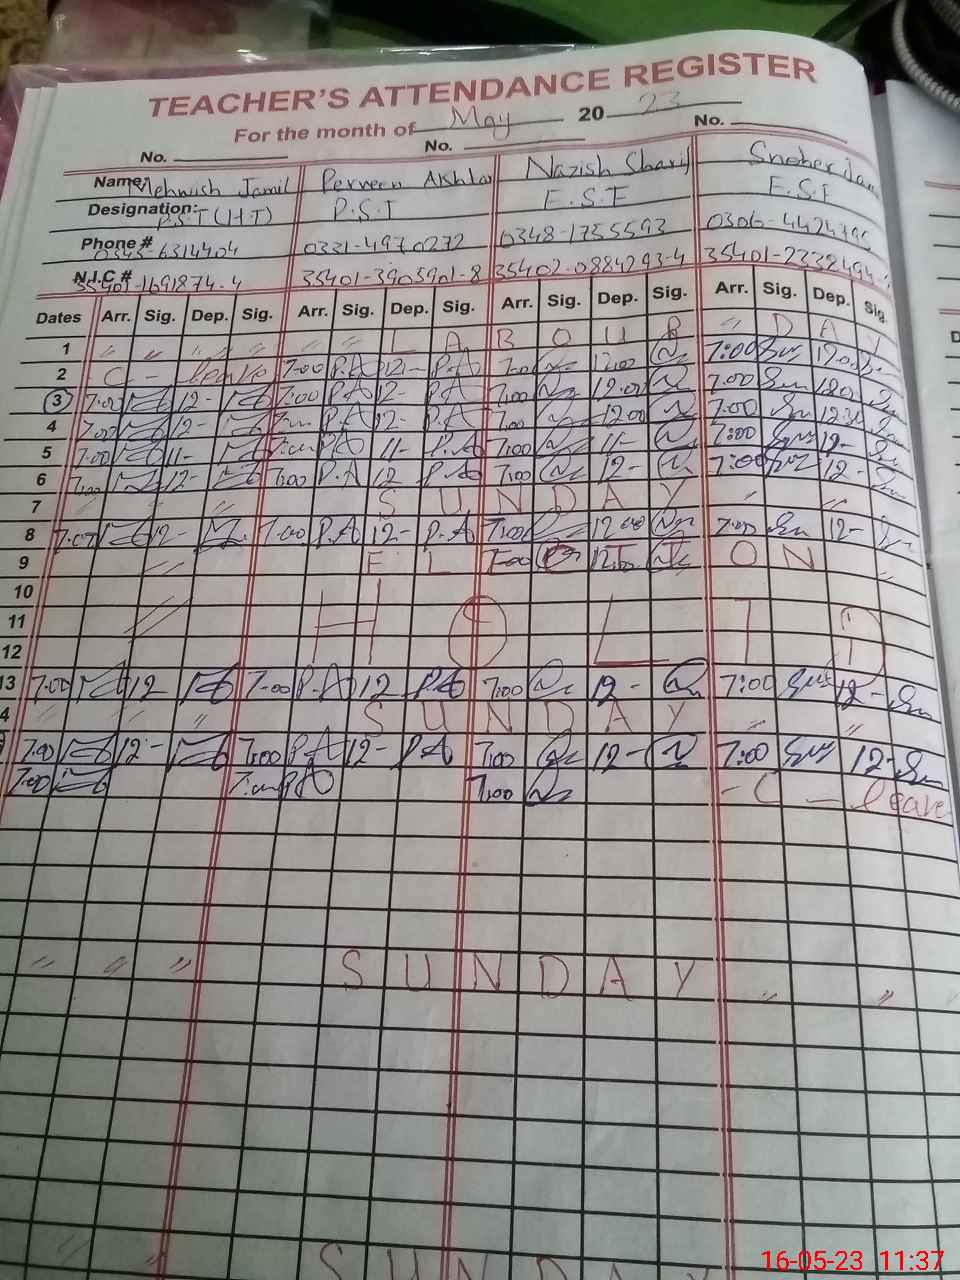 TEACHER'S ATTENDANCE REGISTER
For the month of May 20 23
No. No. No.
Name: Mehwish Jamil Perveen Akhtar Nazish Sharif Snober Jan
Designation: P.S.T (H.T) P.S.T E.S.E E.S.E
Phone # 0345-6314404 0321-4970272 0348-1755593 0306-4424795
N.I.C # 35401-1691874-4 35401-3903901-8 35402-0884293-4 35401-2332494-
Dates Arr. Sig. Dep. Sig. Arr. Sig. Dep. Sig. Arr. Sig. Dep. Sig. Arr. Sig. Dep. Sig.
1 " " " " " " L A B O U R " D A Y
2 C - leave 7:00 P.A 12- P.A 7:00 12:00 7:00 12:00
3 7:00 12- 7:00 P.A 12- P.A 7:00 12:00 7:00 12:00
4 7:00 12- P.A 12- P.A 7:00 12:00 7:00 12:30
5 7:00 11- P.A 11- P.A 7:00 11- 7:00 12-
6 7:00 12- 7:00 P.A 12 P.A 7:00 12- 7:00 12-
7 " " " S U N D A Y " "
8 7:00 12- 7:00 P.A 12- P.A 7:00 12:00 7:00 12-
9 " E L 7:00 12:00 O N "
10
11 " H O L I D
12
13 7:00 12 7:00 P.A 12 P.A 7:00 12- 7:00 12-
4 " " " S U N D A Y " "
7:00 12- 7:00 P.A 12- P.A 7:00 12- 7:00 12-
7:00 P.A 7:00 - C - leave
" " " S U N D A Y " " "
" " S U N D A Y
16-05-23 11:37